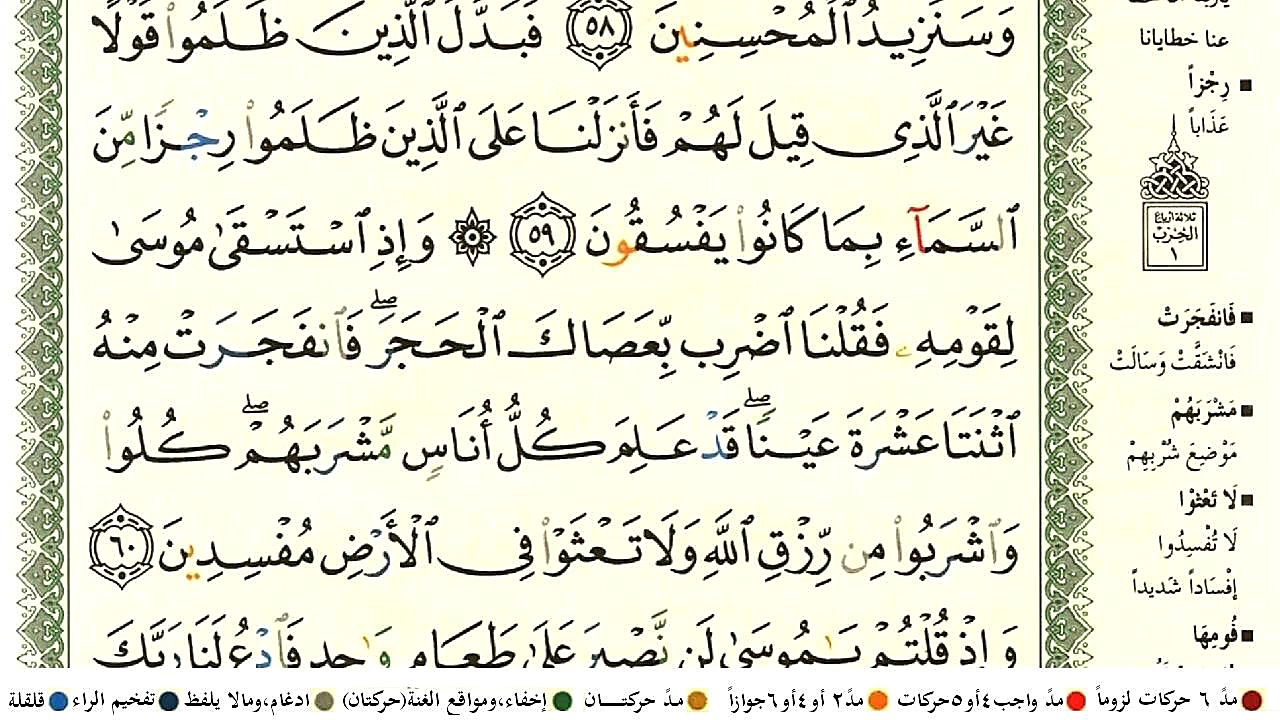 وَسَنَزِيدُ ٱلْمُحْسِنِينَ ٥٨ فَبَدَّلَ ٱلَّذِينَ ظَلَمُوا۟ قَوْلًا
غَيْرَ ٱلَّذِى قِيلَ لَهُمْ فَأَنزَلْنَا عَلَى ٱلَّذِينَ ظَلَمُوا۟ رِجْزًا مِّنَ
ٱلسَّمَآءِ بِمَا كَانُوا۟ يَفْسُقُونَ ٥٩ ۞ وَإِذِ ٱسْتَسْقَىٰ مُوسَىٰ
لِقَوْمِهِۦ فَقُلْنَا ٱضْرِب بِّعَصَاكَ ٱلْحَجَرَ ۖ فَٱنفَجَرَتْ مِنْهُ
ٱثْنَتَا عَشْرَةَ عَيْنًا ۖ قَدْ عَلِمَ كُلُّ أُنَاسٍ مَّشْرَبَهُمْ ۖ كُلُوا۟
وَٱشْرَبُوا۟ مِن رِّزْقِ ٱللَّهِ وَلَا تَعْثَوْا۟ فِى ٱلْأَرْضِ مُفْسِدِينَ ٦٠
وَإِذْ قُلْتُمْ يَـٰمُوسَىٰ لَن نَّصْبِرَ عَلَىٰ طَعَامٍ وَٰحِدٍ فَٱدْعُ لَنَا رَبَّكَ
عنا خطايانا
رِجْزاً
عَذَاباً
ثلاثة أرباع
الحِزْب
١
فَانفَجَرَتْ
فَانْشَقَّتْ وَسَالَتْ
مَشْرَبَهُمْ
مَوْضِعَ شُرْبِهِمْ
لَا تَعْثَوْا
لَا تُفْسِدُوا
إفْسَاداً شَدِيداً
فُومِهَا
مدّ ٦ حركات لزوماً مدّ واجب ٤ أو ٥ حركات مدّ ٢ أو ٤ أو ٦ جوازاً مدّ حركتـــان إخفاء، ومواقع الغنة (حركتان) ادغام، ومالا يلفظ تفخيم الراء قلقلة